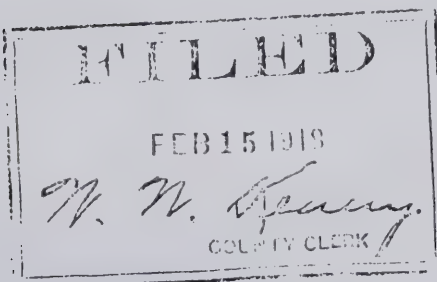 FILED
FEB 15 1919
COUNTY CLERK